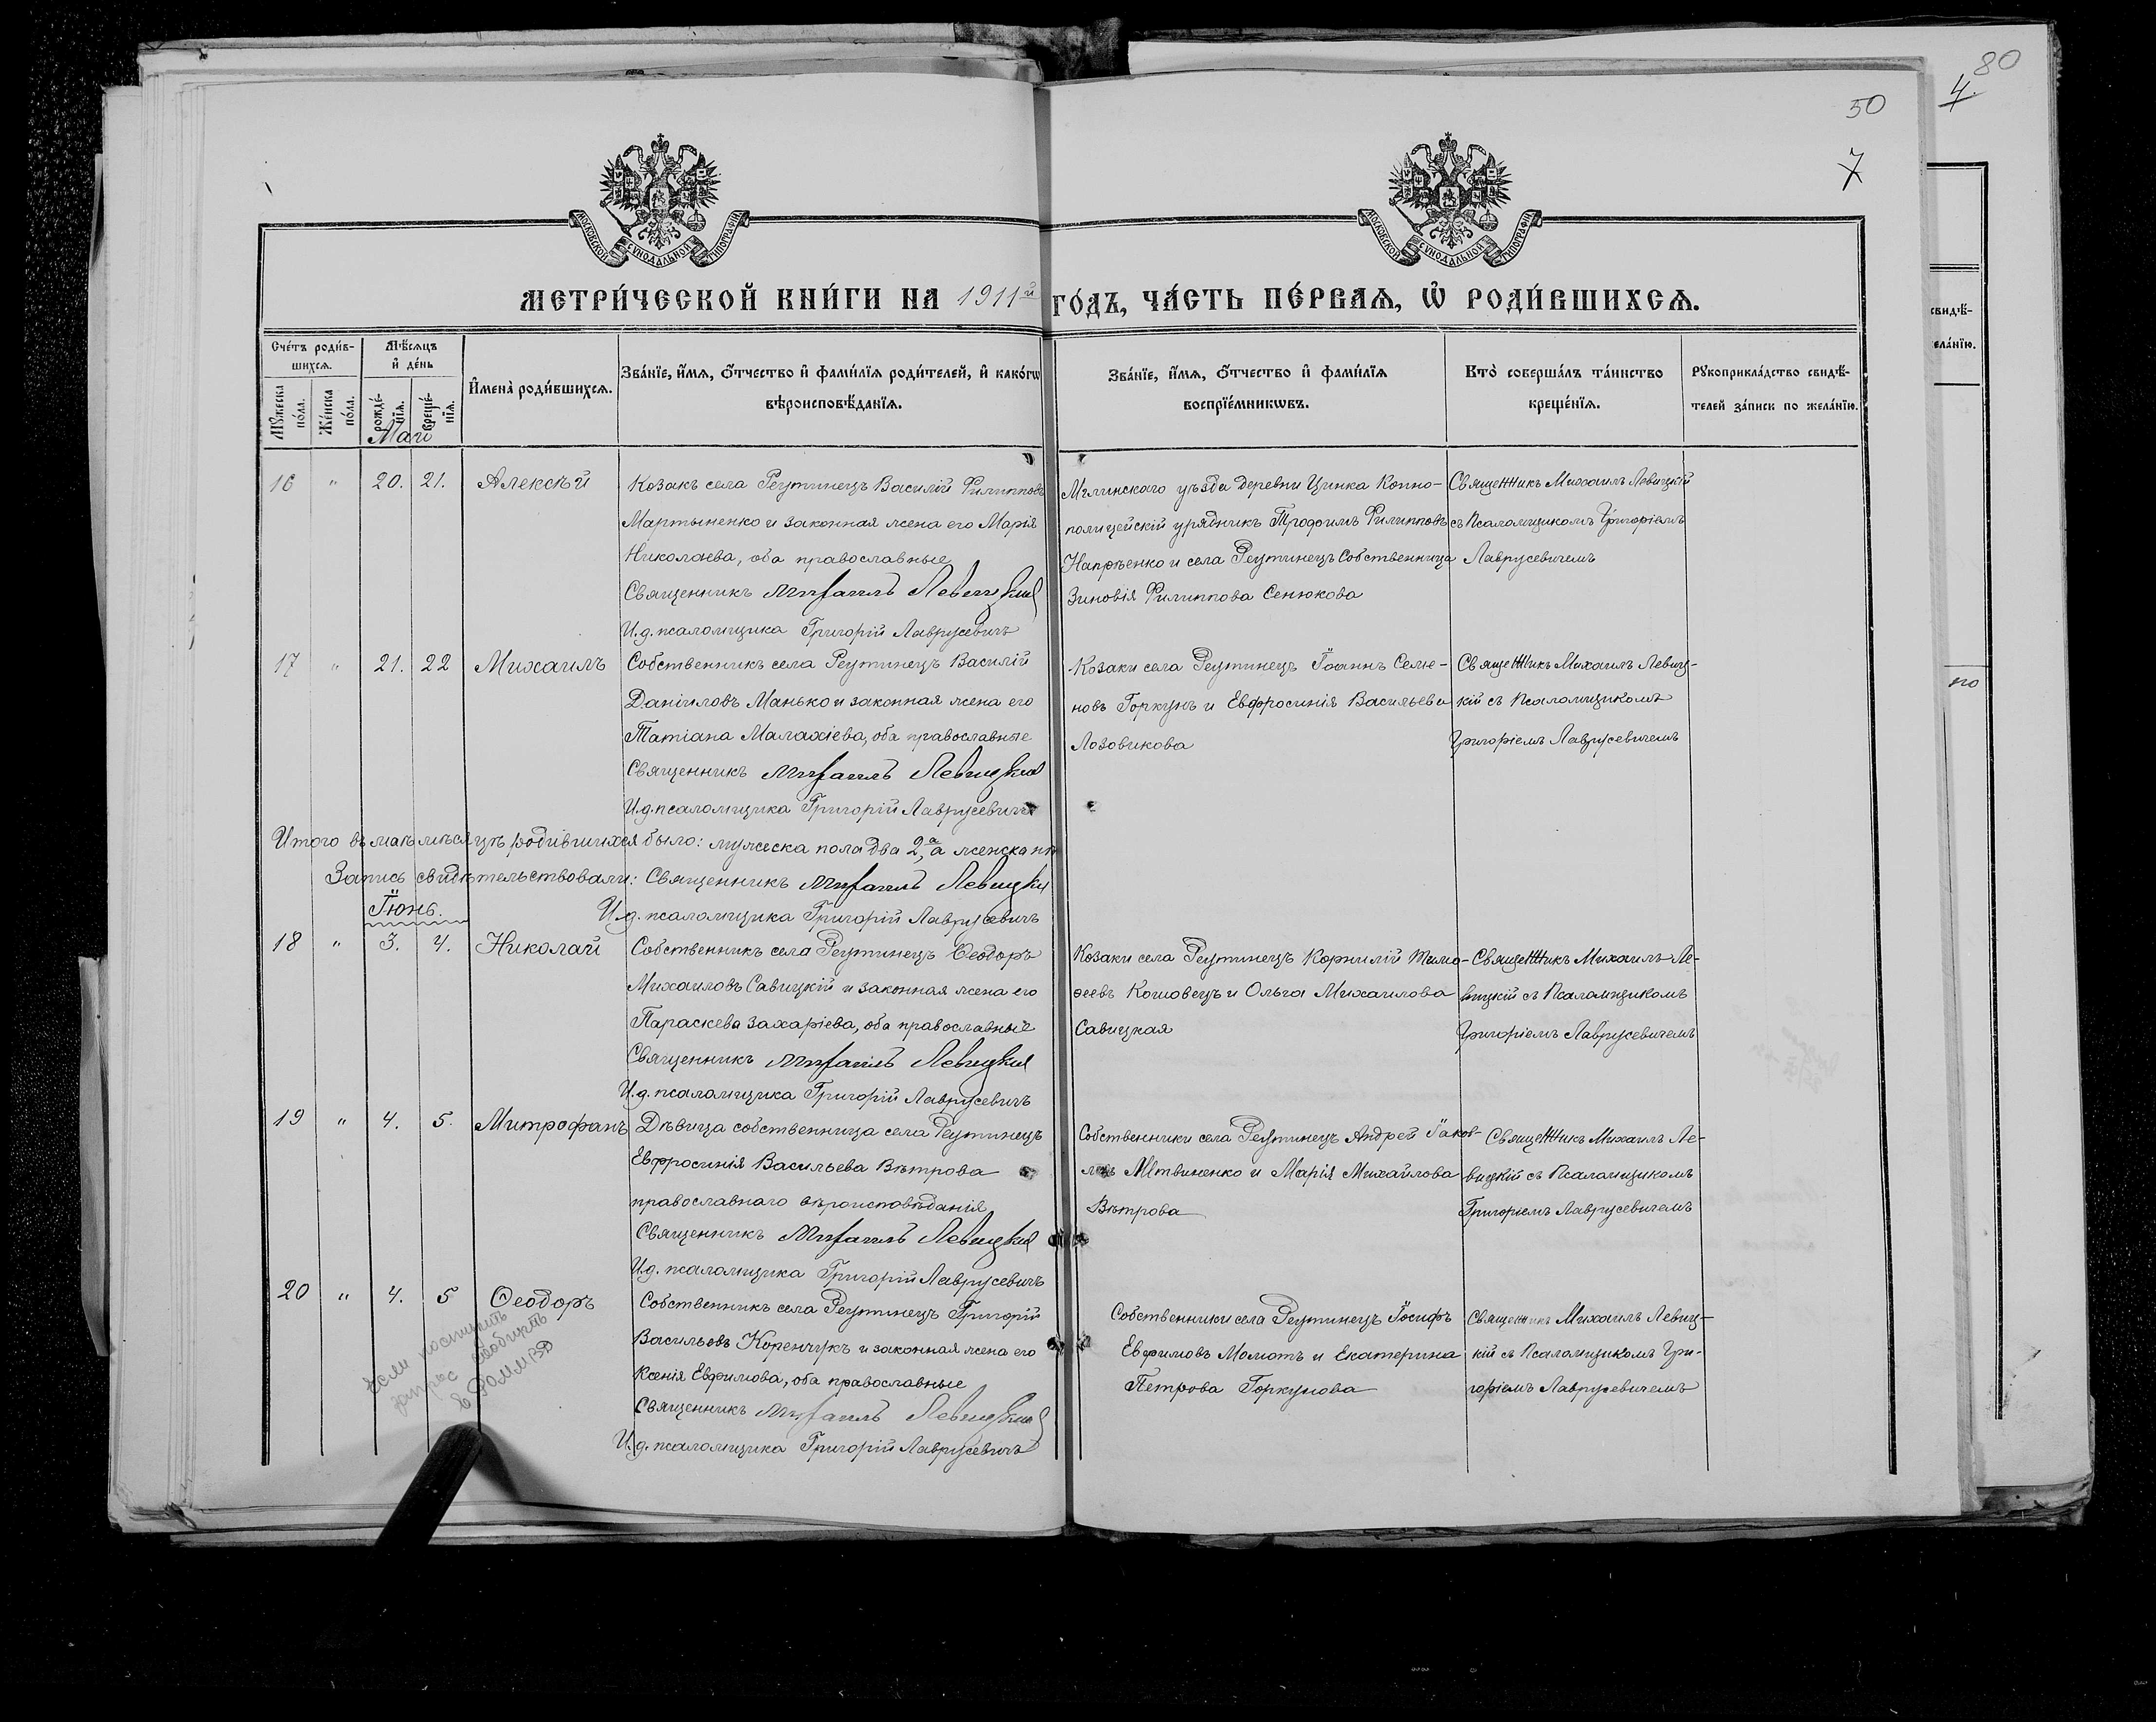 80
4.
50
7
МОСКОВСКОЙ СѴНОДАЛЬНОЙ ТИПОГРАФІИ
МОСКОВСКОЙ СѴНОДАЛЬНОЙ ТИПОГРАФІИ
МЕТРИ́ЧЕСКОЙ КНИ́ГИ НА 1911й ГО́ДЪ, ЧА́СТЬ ПЕ́РВАѦ, Ѡ РОДИ́ВШИХСѦ.
Сче́тъ роди́в-
шихсѧ.
Мꙋжеска по́ла.
Же́нска по́ла.
Мѣ́сѧцъ
и де́нь
рожде́-
нїѧ.
креще́-
нїѧ.
И҆мена̀ роди́вшихсѧ.
Зва́нїе, и҆́мѧ, ѻ҆́тчество и҆ фами́лїѧ роди́телей, и҆ како́гѡ
вѣроисповѣ́данїѧ.
Зва́нїе, и҆́мѧ, ѻ҆́тчество и҆ фами́лїѧ
воспрїе́мникѡвъ.
Кто̀ соверша́лъ та́инство
креще́нїѧ.
Рꙋкоприкла́дство свидѣ́-
телей за́писи по жела́нїю.
свидѣ́-
ела́нїю.
но
Май
16 " 20. 21. Алексѣй
Козакъ села Реутинецъ Василій Филипповъ
Мартыненко и законная жена его Марія
Николаева, оба православные
Священникъ Михаилъ Левицкій
И.д. псаломщика Григорій Лаврусевичъ
Мглинскаго уѣзда деревни Цинка Конно-
полицейскій урядникъ Трофимъ Филипповъ
Напрѣенко и села Реутинецъ собственница
Зиновія Филиппова Сенюкова
Священникъ Михаилъ Левицкій
съ Псаломщикомъ Григоріемъ
Лаврусевичемъ
17 " 21. 22 Михаилъ
Собственникъ села Реутинецъ Василій
Даніиловъ Манько и законная жена его
Татіана Малахіева, оба православные
Священникъ Михаилъ Левицкій
И.д. псаломщика Григорій Лаврусевичъ
Козаки села Реутинецъ Іоаннъ Семе-
новъ Горкунъ и Евфросинія Васильева
Лозовикова
Священникъ Михаилъ Левиц-
кій съ Псаломщикомъ
Григоріемъ Лаврусевичемъ
Итого въ маѣ мѣсяцѣ родившихся было: мужеска пола два 2, а женска нѣ
Запись свидѣтельствовали: Священникъ Михаилъ Левицкій
И.д. псаломщика Григорій Лаврусевичъ
Іюнь.
18 " 3. 4. Николай
Собственникъ села Реутинецъ Ѳеодоръ
Михаиловъ Савицкій и законная жена его
Параскева Захаріева, оба православные
Священникъ Михаилъ Левицкій
И.д. псаломщика Григорій Лаврусевичъ
Козаки села Реутинецъ Корнилій Тимо-
ѳеевъ Кошовецъ и Ольга Михаилова
Савицкая
Священникъ Михаилъ Ле-
вицкій съ Псаломщикомъ
Григоріемъ Лаврусевичемъ
19 " 4. 5. Митрофанъ
Дѣвица собственница села Реутинецъ
Евфросинія Васильева Вѣтрова
православнаго вѣроисповѣданія
Священникъ Михаилъ Левицкій
И.д. псаломщика Григорій Лаврусевичъ
Собственники села Реутинецъ Андрей Іаков-
левъ Литвиненко и Марія Михайлова
Вѣтрова
Священникъ Михаилъ Ле-
вицкій съ Псаломщикомъ
Григоріемъ Лаврусевичемъ
20 " 4. 5 Ѳеодоръ
Собственникъ села Реутинецъ Григорій
Васильевъ Коренчукъ и законная жена его
Ксенія Евфимова, оба православные
Священникъ Михаилъ Левицкій
И.д. псаломщика Григорій Лаврусевичъ
Собственники села Реутинецъ Іосифъ
Евфимовъ Момотъ и Екатерина
Петрова Горкунова
Священникъ Михаилъ Левиц-
кій съ Псаломщикомъ Гри-
горіемъ Лаврусевичемъ
Если поступит
запрос сообщить
в РОММВД